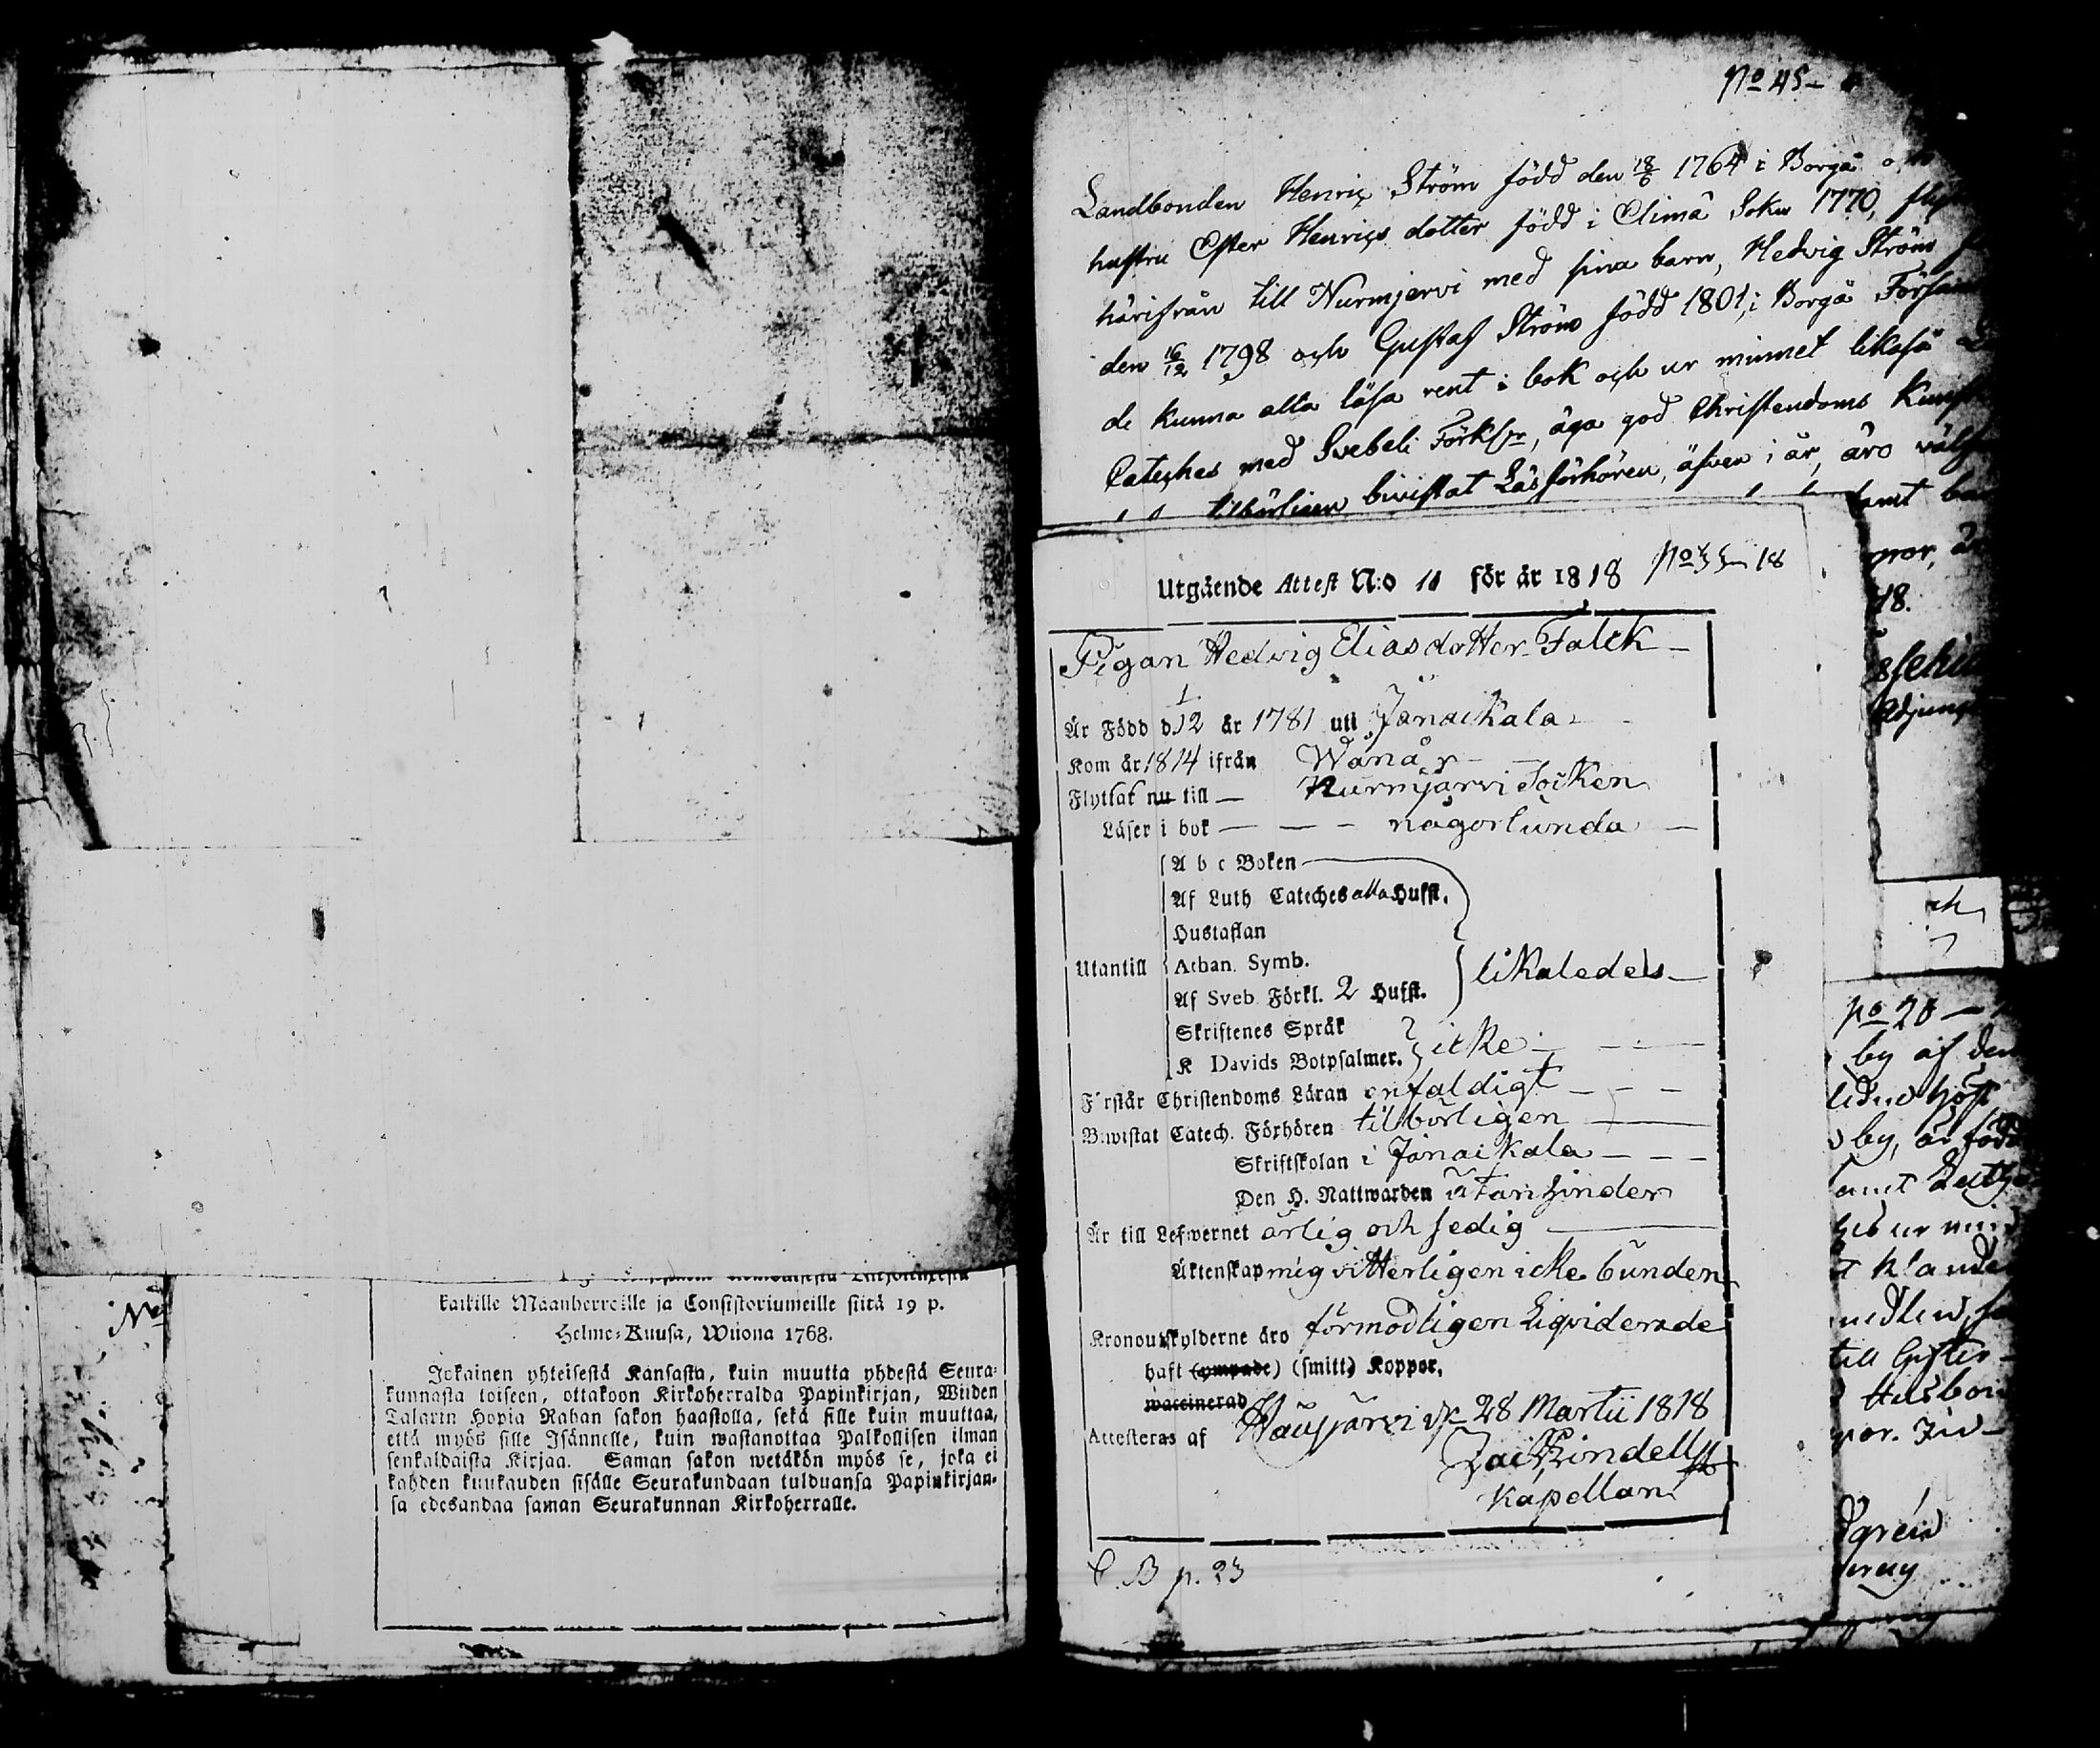 kaikille Maanherroille ja Consistoriumeille siitä 19 p.
Helme-Kuusa, Wuona 1768.
Jokainen yhteisestä Kansasta, kuin muutta yhdestä Seura-
kunnasta toiseen, ottakoon Kirkoherralda Papinkirjan, Wiiden
Talarin Hopia Rahan sakon haastolla, sekä sille kuin muuttaa,
että myös sille Isännelle, kuin wastanottaa Palkollisen ilman
senkaldaista Kirjaa. Saman sakon wetäkön myös se, joka ei
kahden kuukauden sisälle Seurakundaan tulduansa Papinkirjan-
sa edesandaa saman Seurakunnan Kirkoherralle.
No 45
Landbonden Henric Ström född den 18/6 1764 i Borgå
hustru Ester Henrics dotter född i Elimä Sokn 1770,
härifrån till Nurmjervi med sina barn, Hedvig Ström
den 16/12 1798 och Gustaf Ström född 1801, i Borgå
de kunna alla läsa rent i bok och ur minnet likaså
Cateches med Svebeli Förkl:r, äga god Christendoms
tilbörligen bivistat Läsförhören, äfven i år, äro
Utgäende Attest N:o 11 för år 1818 No 33 18
Pigan Hedvig Eliasdotter Falck
Är Född d. 1/12 år 1781 uti Janaikala
Kom år 1814 ifrån Wånå
Flyttat nu till Nurmjärvi Socken
Läser i bok någorlunda
A b c Boken
Af Luth Cateches alla Hufst.
Hustaflan
Utantill Athan. Symb. likaledes
Af Sveb Förkl. 2 Hufst.
Skriftenes Språk
K Davids Botpsalmer. icke
Förstår Christendoms Läran enfaldigt
Biwistat Catech. Förhören tilbörligen
Skriftskolan i Janaikala
Den H. Nattwarden utan hinder
Är till Lefwernet ärlig och sedig
Äktenskap mig vitterligen icke bunden
Kronoutskylderne äro förmodligen Liqviderade
haft (ympade) (smitt) Koppor.
waccinerad
Attesteras af Hausjärvi d. 28 Martii 1818
Kapellan
C. B p. 23
18.
No 20
by af den
by, är född